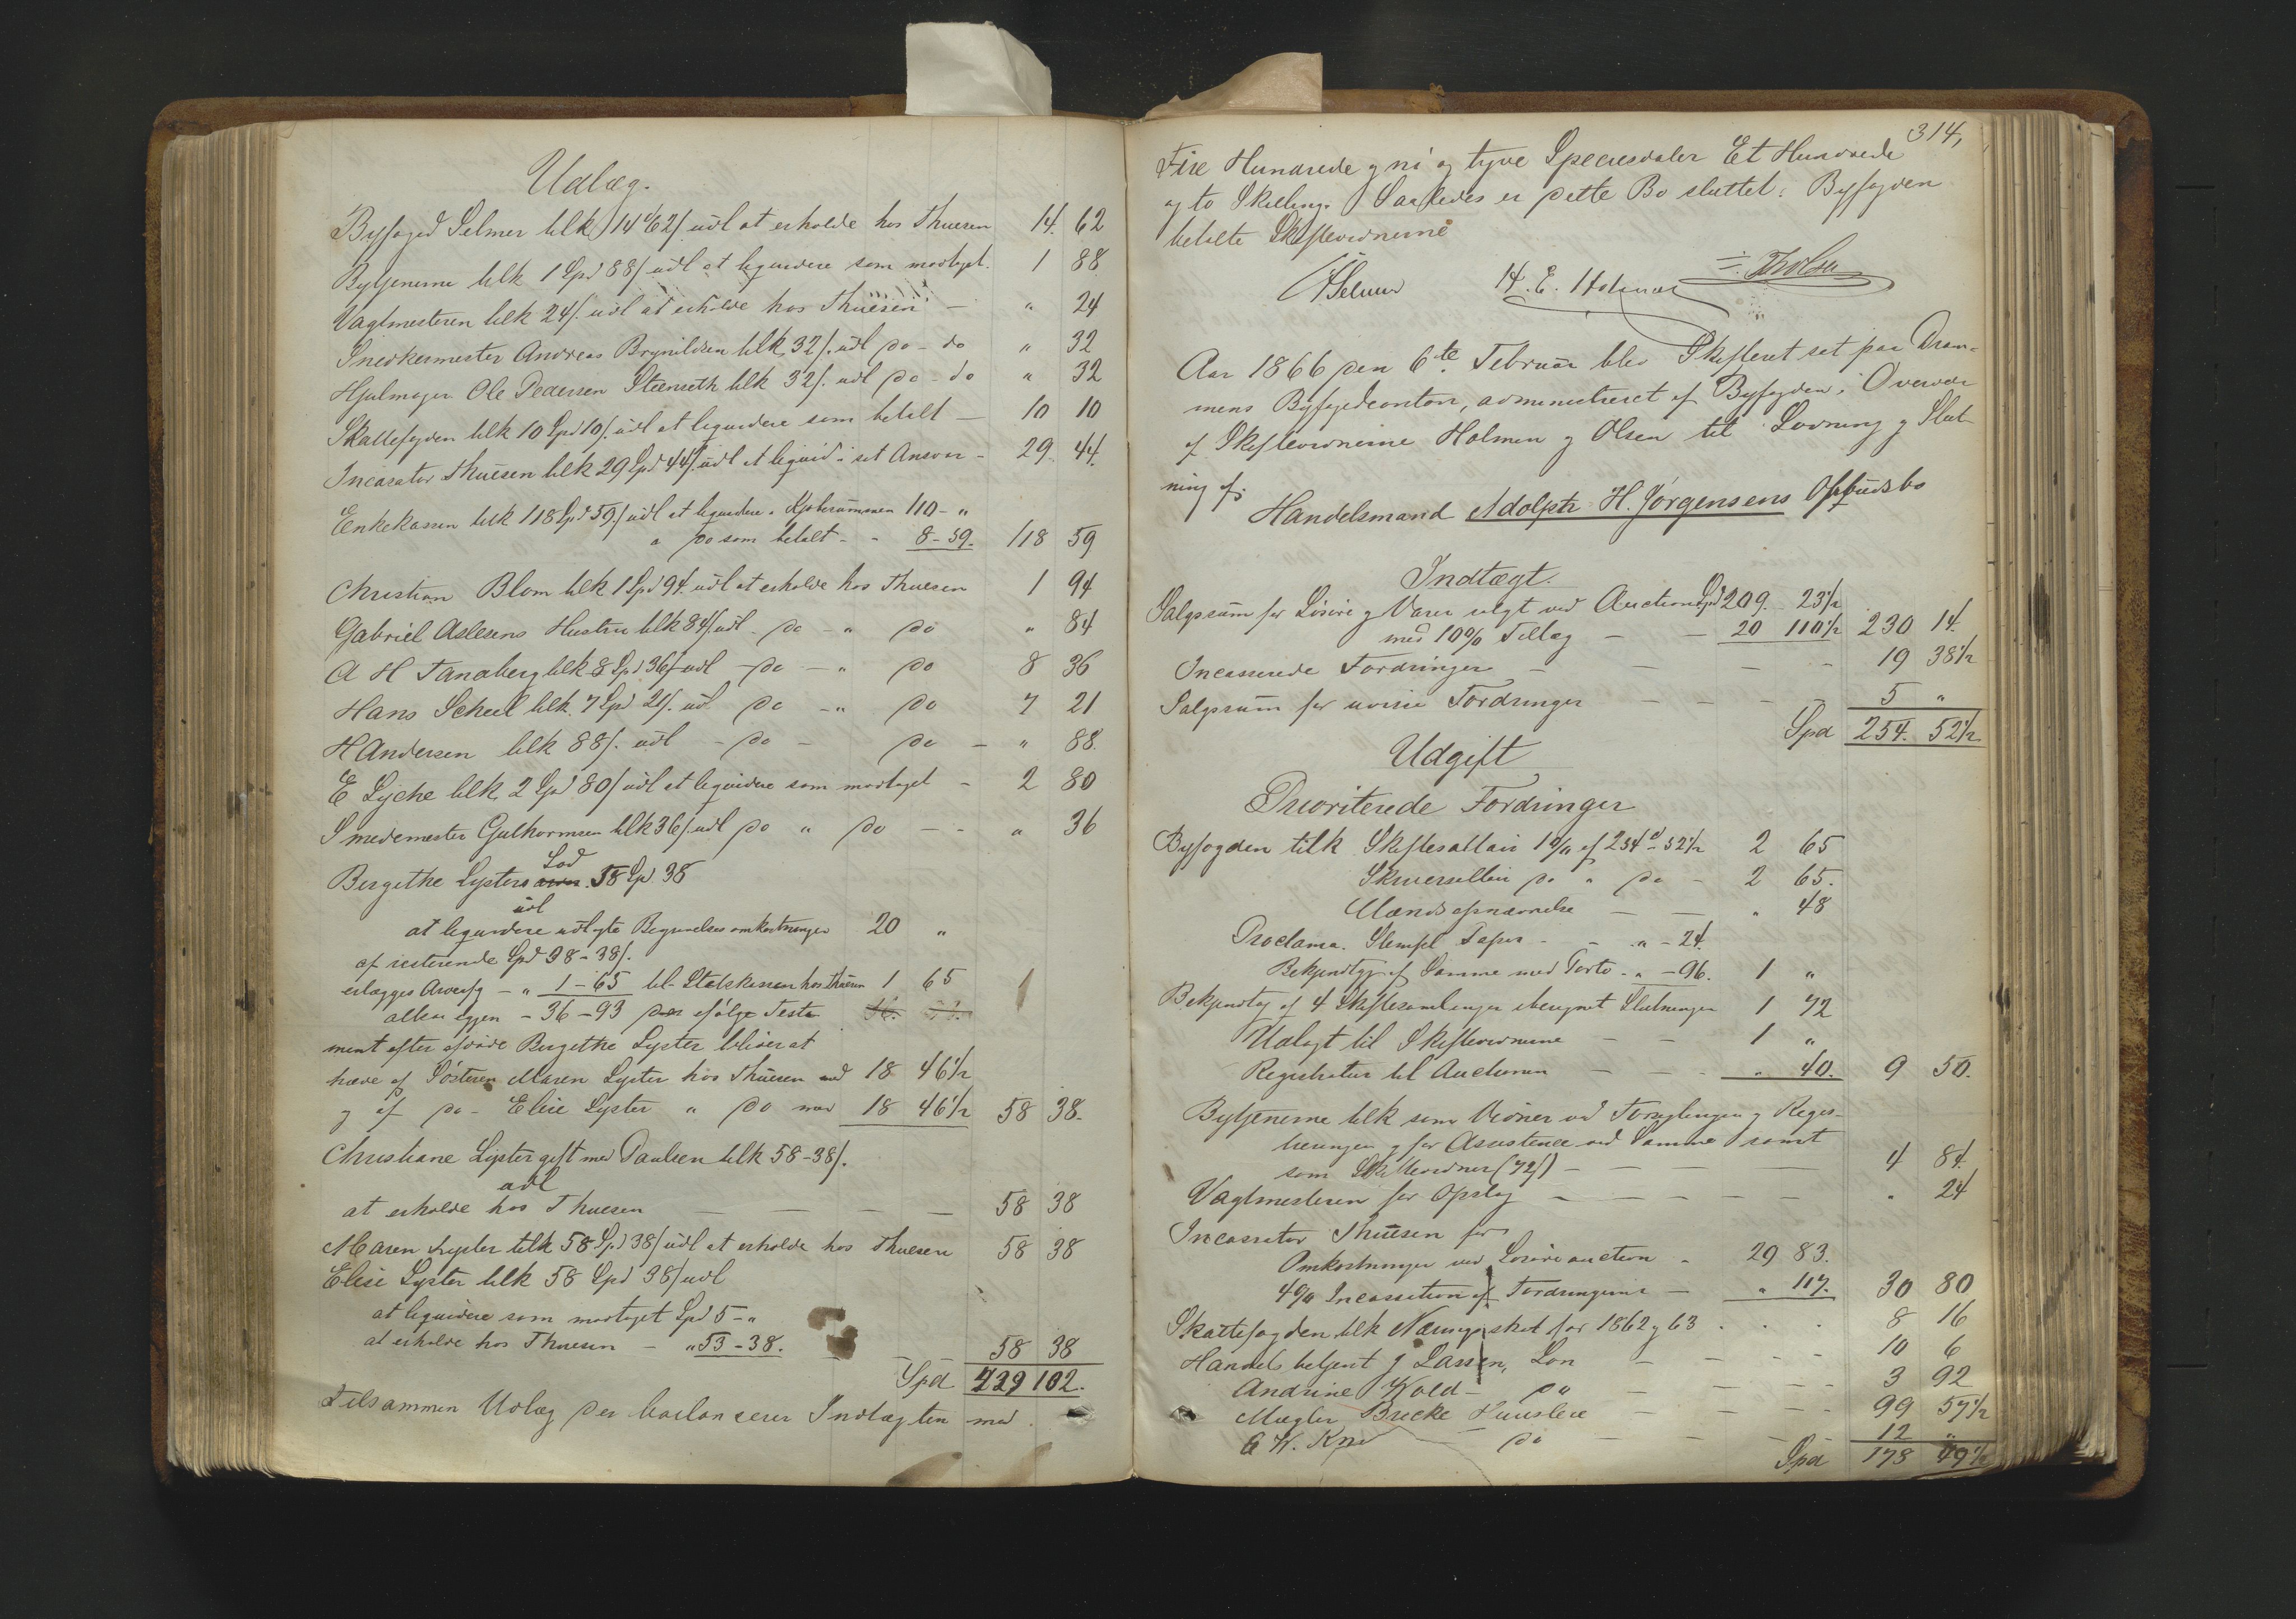 Udlæg.
Byfoged Selmer tilk 14 62/ udl at erholde hos Thuesen 14. 62
Bytjenerne tilk 1 Spd 88/ udl at liqvidere som modtaget. 1 88
Vagtmesteren tilk 24/. udl at erholde hos Thuesen — " 24
Snedkermester Andreas Brynildsen tilk 32/. udl do - do " 32
Hjulmager Ole Pedersen Steenseth tilk 32/. udl do - do " 32
Skattefogden tilk 10 Spd 10/. udl at liqvidere som betalt — 10 10
Incasator Thuesen tilk 29 Spd 44/ udl at liqvid i sit Ansvar - 29 44.
Enkekassen tilk 118 Spd 59/ udl at liqvidere i Kjøbesummen 110 - "
a do som betalt - - 8 - 59. 118 59
Christian Blom tilk 1 Spd 94. udl at erholde hos Thuesen 1 94
Gabriel Aslesens Hustru tilk 84/. udl - do - " do " 84
A H Tandberg tilk 8 Spd 36/ udl - do - " do 8 36
Hans Scheel tilk. 7 Spd 21/. udl do - " do 7 21
H Andersen tilk 88/. udl - do - do - " 88.
E Lyche tilk. 2 Spd 80/ udl at liqvidere som modtaget - 2 80
Smedemester Gulhormsen tilk 36/. udl do " do - - " 36
Lod
Bergithe Lysters 58 Spd 38
udl
at liqvidere udlagte Begravelsesomkostninger 20 "
af resterende Spd 38 - 38/.
erlægges Arveafg - " 1 - 65 til Statskassen hos Thuesen 1 65
altsaa igjen - 36 - 93 ifølge Testa
ment efter afdøde Bergithe Lyster bliver at
hæve af Søsteren Maren Lyster hos Thuesen med 18 46½
og af do - Elise Lyster " do med 18 46½ 58 38.
Christiane Lyster gift med Paulsen tilk 58 - 38/.
udl
at erholde hos Thuesen — — — — 58 38
Maren Lyster tilk 58 Spd 38/ udl at erholde hos Thuesen 58 38
Elise Lyster tilk 58 Spd 38/ udl
at liqvidere som modtaget Spd 5 - "
at erholde hos Thuesen - " 53 - 38. 58 38
Spd 429 102.
Tilsammen Udlæg der balancerer Indtægten med
314,
Fire Hundrede og ni og tyve Speciesdaler Et Hundrede
og to Skilling. Saaledes er dette Bo sluttet. Byfogden
betalte Skiftevidnerne
Selmer H. E. Holmen Th Olsen
Aar 1866 den 6te Februar blev Skifteret sat paa Dram-
mens Byfogedcontoir, administreret af Byfogden i Overvær
af Skiftevidnerne Holmen og Olsen til Lovning og Slut
ning af
Handelsmand Adolph H. Jørgensens Opbudsbo
Indtægt.
Salgssum for Løsøre og Varer solgt ved Auction Spd 209. 23½
med 10% Tillæg — — 20 110½ 230 14.
Incasserede Fordringer — — — — 19 38½
Salgssum for uvisse Fordringer — — — — 5 "
Spd 254. 52½
Udgift
Prioriterede Fordringer
Byfogden tilk Skiftesallair 1% af 254 d - 52½ 2 65
Skriversallair do " do - 2 65.
Mænds opnævnelse — — " 48
Proclama. Stempel Papir - - " - 24.
Bekjendtg af Samme med Porto - " - 96. 1 "
Bekjendtg af 4 Skiftesamlinger iberegnet Slutningen 1 72
Udlagt til Skiftevidnerne — — 1 "
Registratur til Auctionen — — - " 40. 9 50.
Bytjenerne tilk som Vidner ved Forseglingen og Regis-
treringen og for Assistence ved Samme samt
som Skiftevidner (72/) — — — — 4 84.
Vagtmesteren for Opslag — — — — - " 24
Incassator Thuesen for
Omkostninger ved Løsøreauction - 29 83.
4% Incassation af Fordringerne — " 117. 30 80
Skattefogden tilk Næringsskat for 1862 og 63 - - - 8 16
Handelsbetjent J Lassen, Løn — — - - 10 6
Andrine Wold - do — — - - 3 92
Mægler Brecke Huusleie — — - - 99 57½
do — — - 12 "
Spd 178 49½